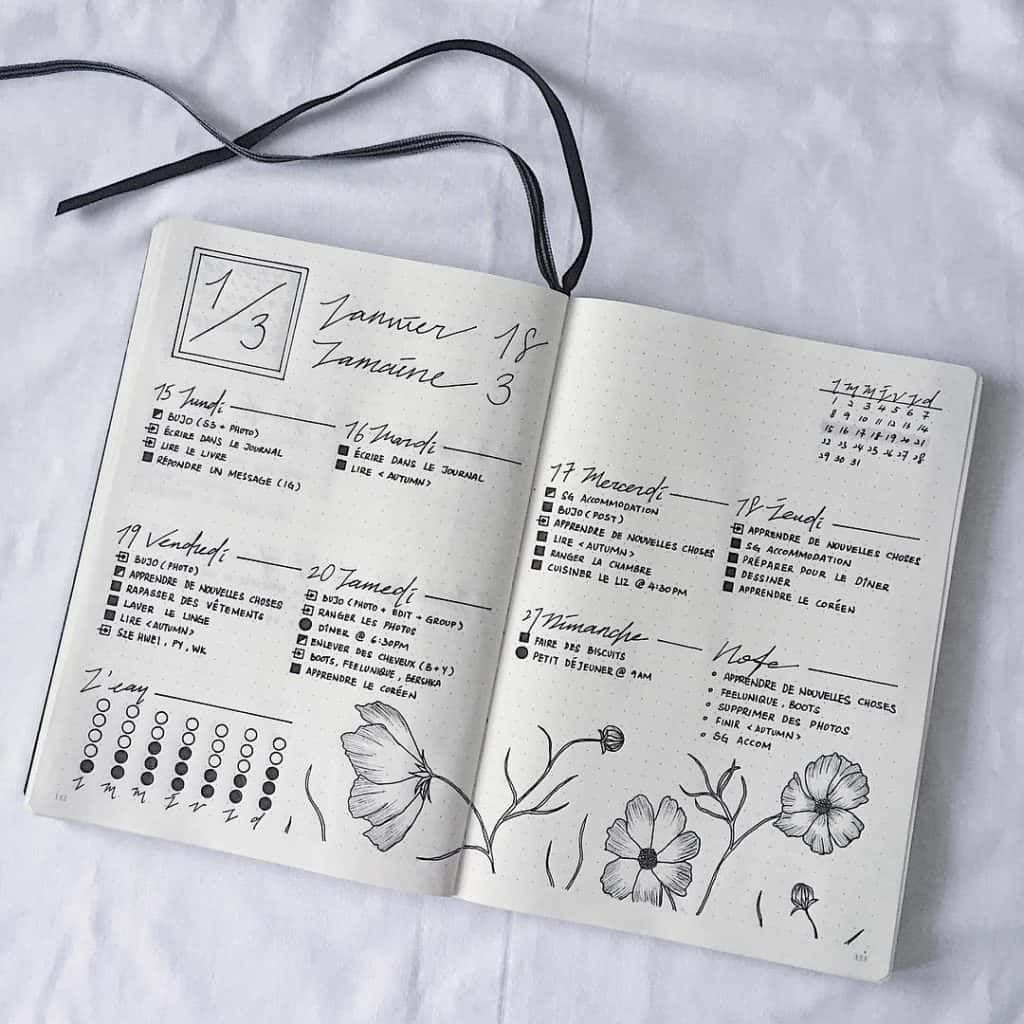 1/3
Janvier 18
Samaine 3
15 Lundi
BUJO (S3 + PHOTO)
ÉCRIRE DANS LE JOURNAL
LIRE LE LIVRE
RÉPONDRE UN MESSAGE (IG)
16 Mardi
ÉCRIRE DANS LE JOURNAL
LIRE <AUTUMN>
17 Mercerdi
SG ACCOMMODATION
BUJO (POST)
APPRENDRE DE NOUVELLES CHOSES
LIRE <AUTUMN>
RANGER LA CHAMBRE
CUISINER LE LIZ @ 4:30PM
18 Jeudi
APPRENDRE DE NOUVELLES CHOSES
SG ACCOMMODATION
PRÉPARER POUR LE DÎNER
DESSINER
APPRENDRE LE CORÉEN
19 Vendredi
BUJO (PHOTO)
APPRENDRE DE NOUVELLES CHOSES
RAPASSER DES VÊTEMENTS
LAVER LE LINGE
LIRE <AUTUMN>
SZE HWEI, PY, WK
20 Samedi
BUJO (PHOTO + EDIT + GROUP)
RANGER LES PHOTOS
DÎNER @ 6:30PM
ENLEVER DES CHEVEUX (B+Y)
BOOTS, FEELUNIQUE, BERSHKA
APPRENDRE LE CORÉEN
21 Dimanche
FAIRE DES BISCUITS
PETIT DÉJEUNER @ 9AM
Note
APPRENDRE DE NOUVELLES CHOSES
FEELUNIQUE, BOOTS
SUPPRIMER DES PHOTOS
FINIR <AUTUMN>
SG ACCOM
L'eau
l m m j v s d
l m m j v s d
1 2 3 4 5 6 7
8 9 10 11 12 13 14
15 16 17 18 19 20 21
22 23 24 25 26 27 28
29 30 31